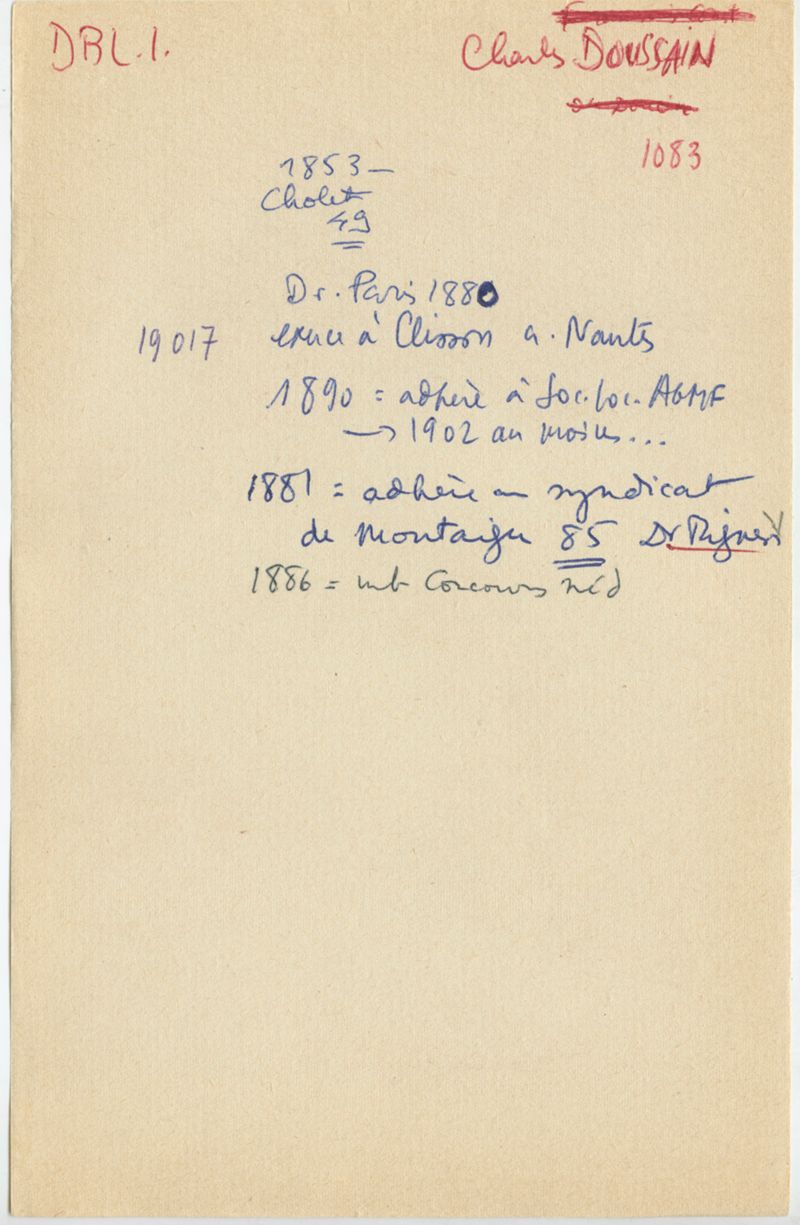 DBL.1.
Charles DOUSSAIN
1083
1853 —
Cholet
49
Dr. Paris 1880
19017 exerce à Clisson a. Nantes
1890 = adhère à Soc. loc. AGMF
→ 1902 au moins...
1881 = adhère au syndicat
de Montaigu 85 Dr
1886 = mb Concours méd